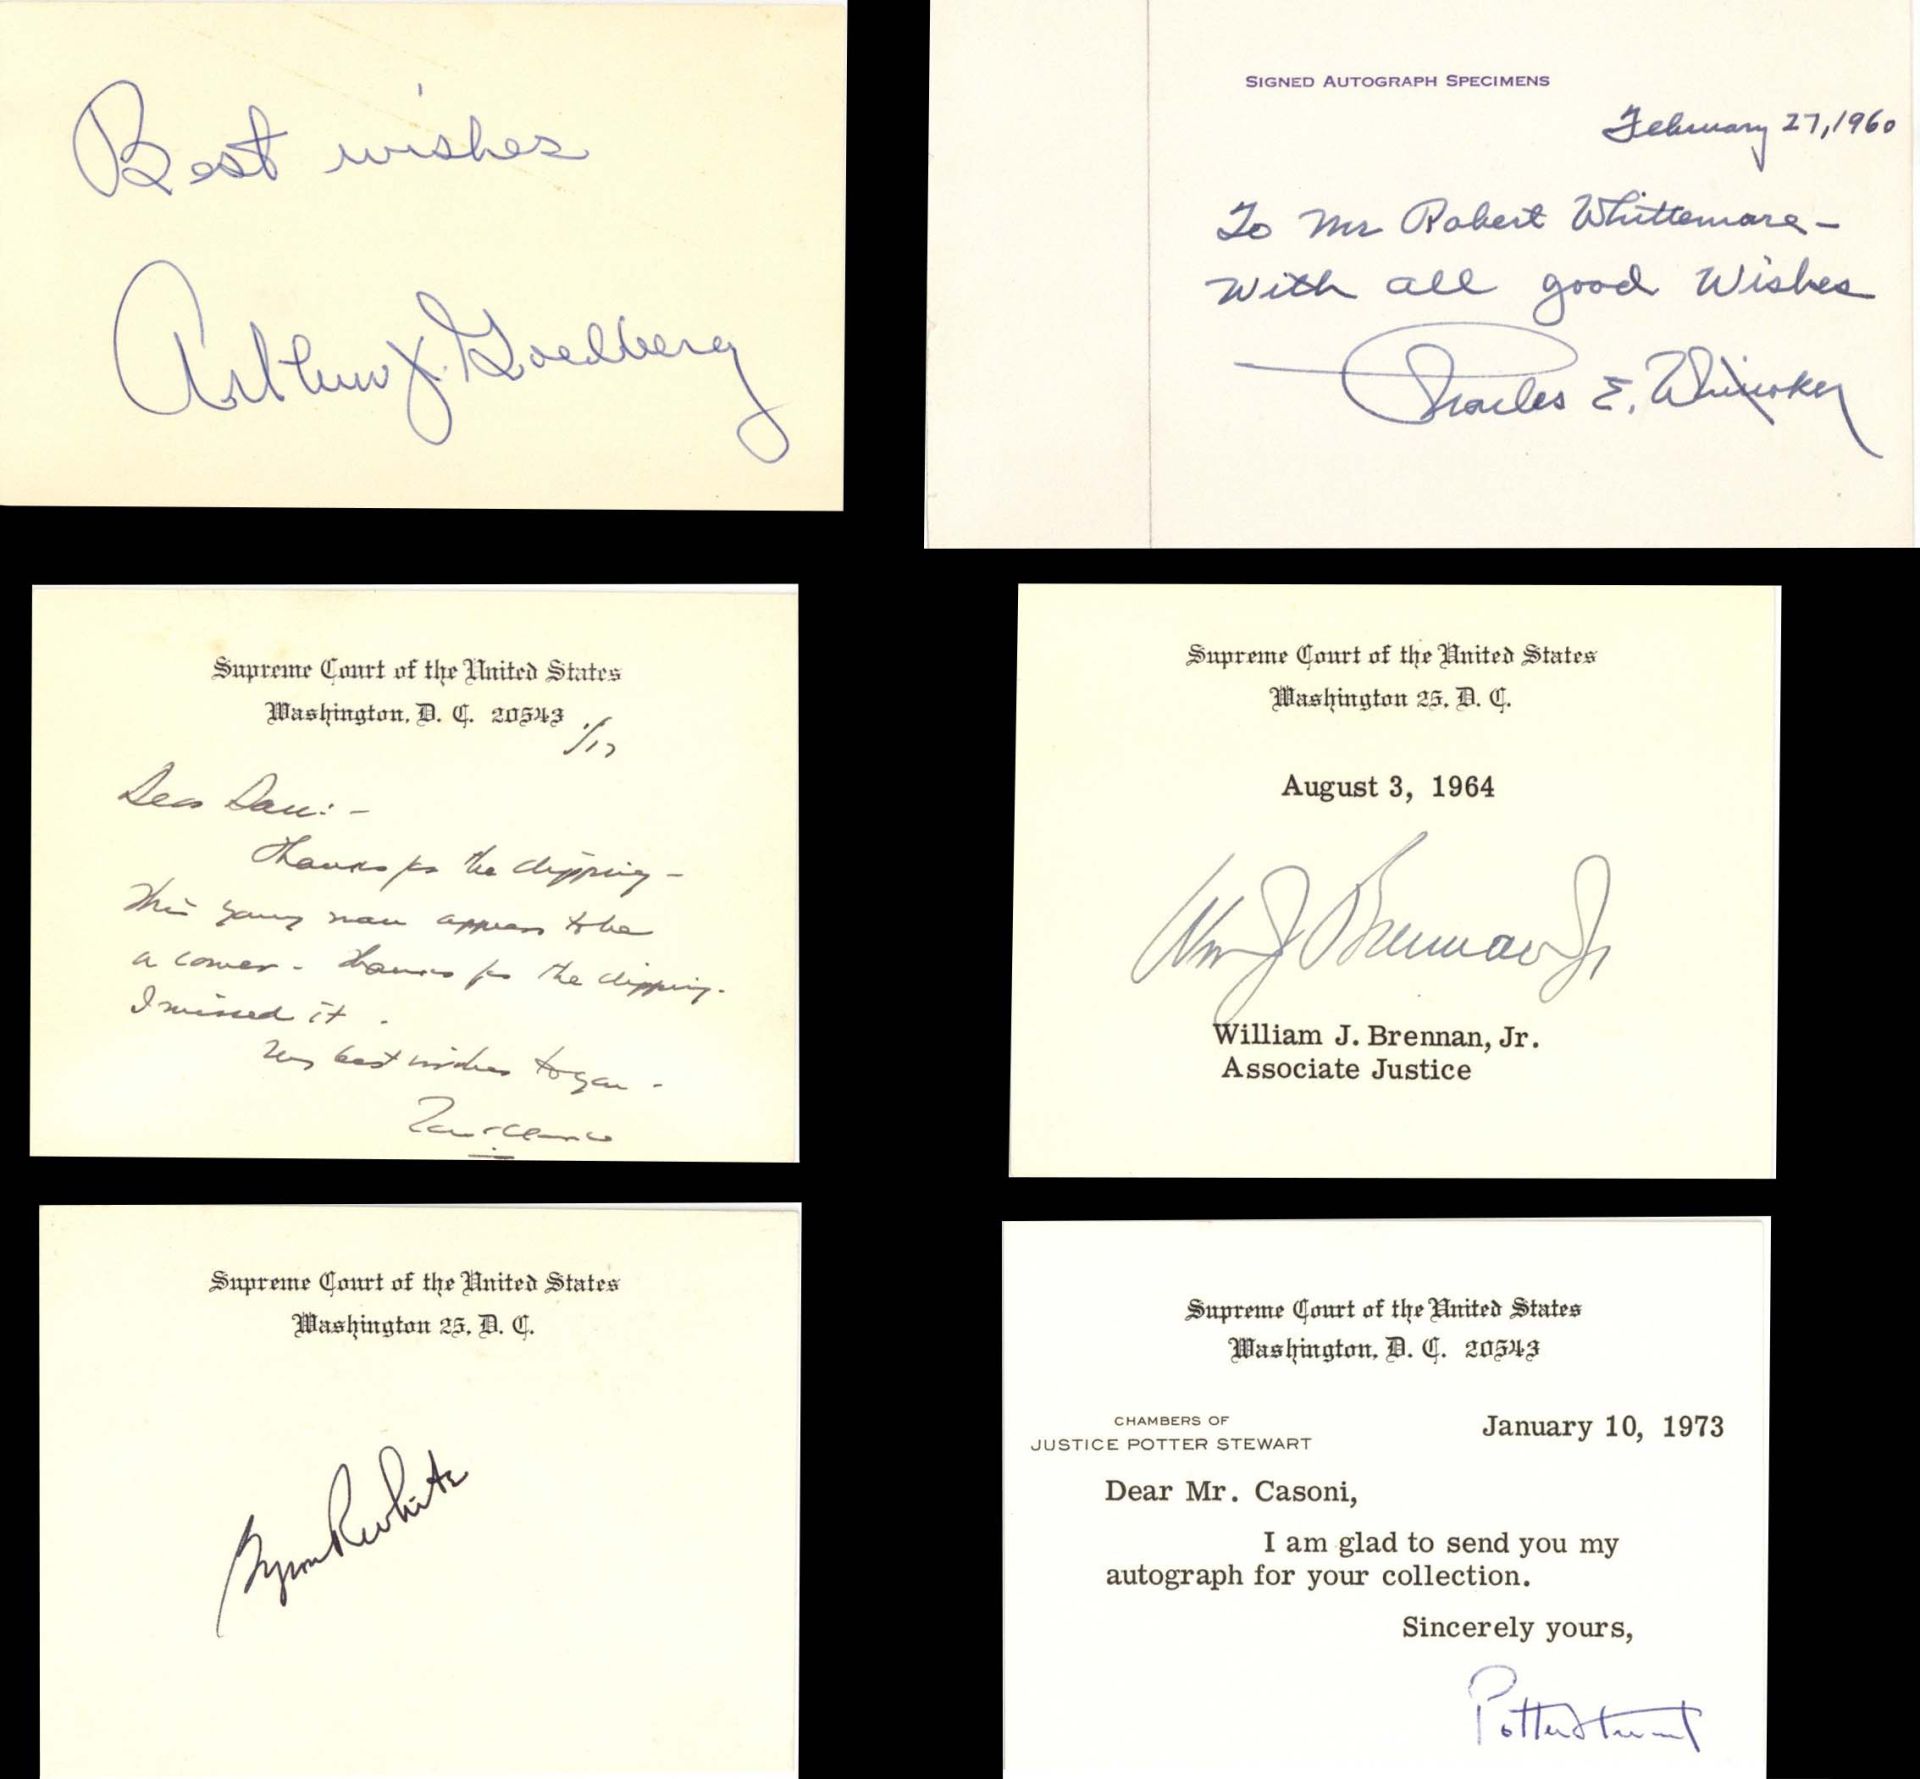 Best wishes
Arthur J. Goldberg
SIGNED AUTOGRAPH SPECIMENS
February 27, 1960
To Mr Robert Whittemore –
With all good Wishes
Charles E. Whittaker
Supreme Court of the United States
Washington, D. C. 20543
1/17
Dear Dan: –
Thanks for the clipping –
This young man appears to be
a comer – thanks for the clipping.
I missed it.
best wishes to you –
Tom C Clark
Supreme Court of the United States
Washington 25, D. C.
August 3, 1964
Wm J Brennan Jr
William J. Brennan, Jr.
Associate Justice
Supreme Court of the United States
Washington 25, D. C.
Byron R White
Supreme Court of the United States
Washington, D. C. 20543
CHAMBERS OF
JUSTICE POTTER STEWART
January 10, 1973
Dear Mr. Casoni,
I am glad to send you my
autograph for your collection.
Sincerely yours,
Potter Stewart